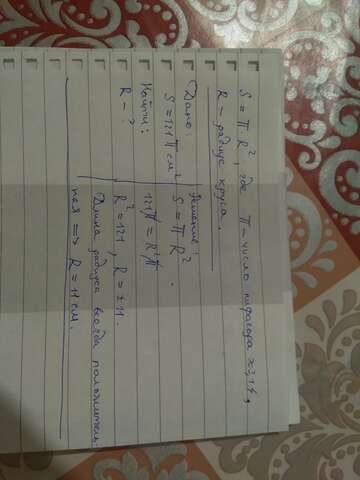 S = π · R², где π – число пифагора ≈ 3,14,
R – радиус круга.
Дано:
S = 121π см²
Найти:
R – ?
Решение:
S = π R².
121π = R²π
R² = 121, R = ± 11.
Длина радиуса всегда положитель-
ная => R = 11 см.